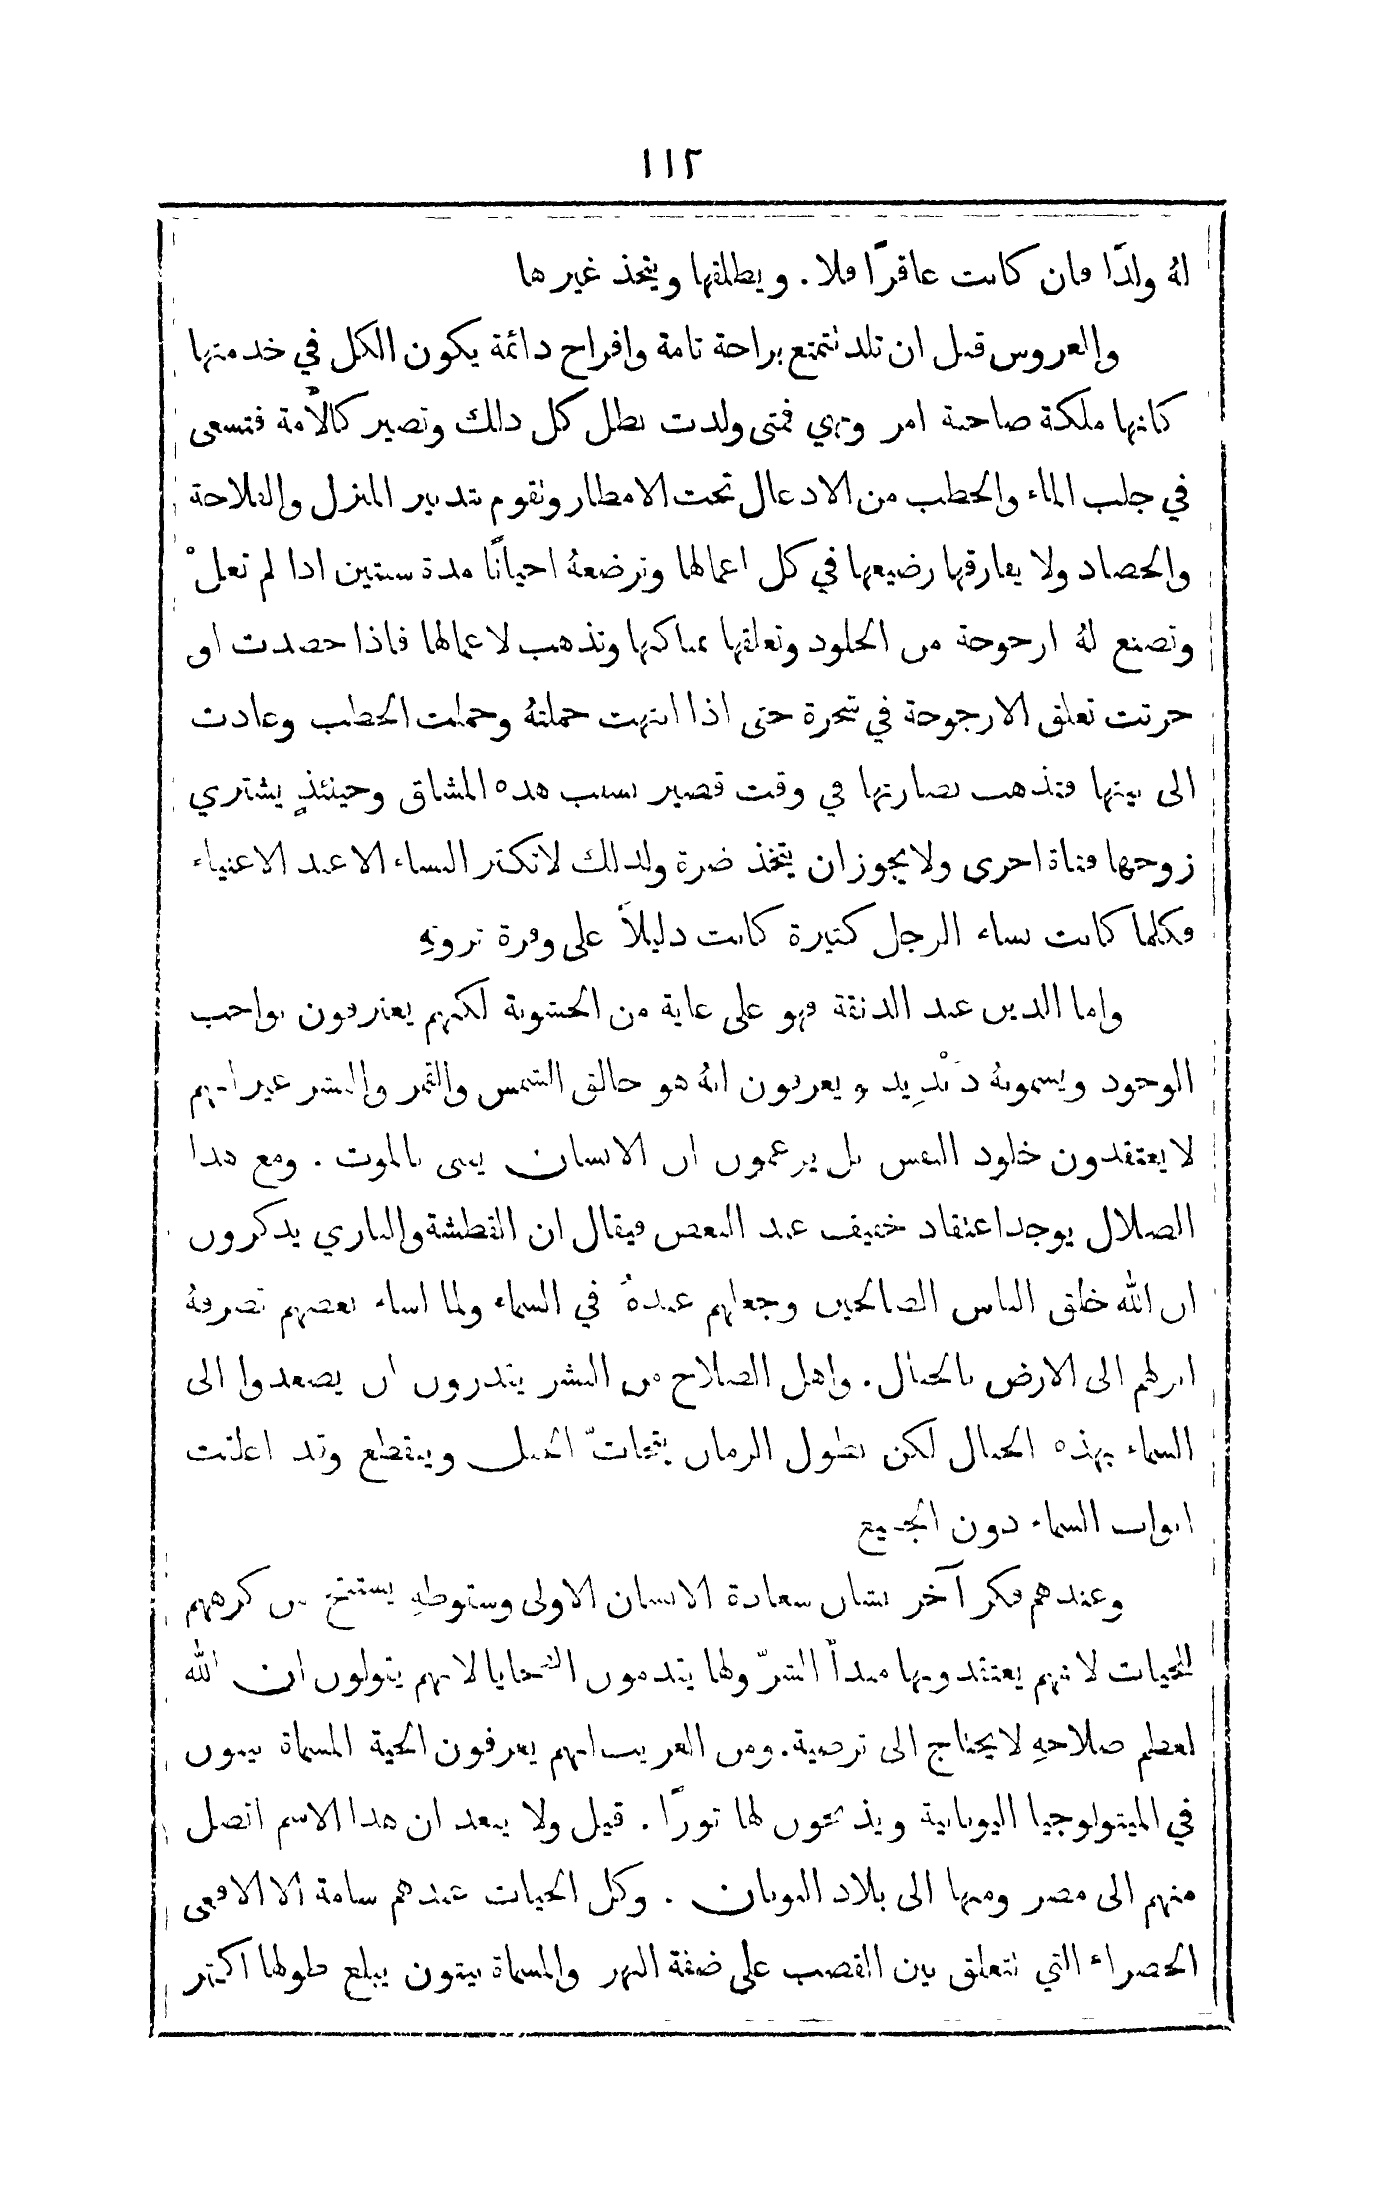 ١١٢
لهُ ولدًا فان كانت عاقرًا فلا. ويطلقها ويتخذ غيرها
والعروس قبل ان تلد تتمتع براحة تامة وافراح دائمة يكون الكل في خدمتها
كانها ملكة صاحبة امر ونهي فمتى ولدت بطل كل ذلك وتصير كالأَمة فتسعى
في جلب الماء والحطب من الادغال تحت الامطار وتقوم بتدبير المنزل والفلاحة
والحصاد ولا يفارقها رضيعها في كل اعمالها وترضعهُ احيانًا مدة سنتين اذا لم تعلْ
وتصنع لهُ ارجوحة من الجلود وتعلقها بمناكبها وتذهب لاعمالها فاذا حصدت او
حرثت تعلق الارجوحة في شجرة حتى اذا انتهت حملتهُ وحملت الحطب وعادت
الى بيتها فتذهب نضارتها في وقت قصير بسبب هذه المشاق وحينئذٍ يشتري
زوجها فتاة اخرى ولا يجوز ان يتخذ ضرة ولذلك لا تكثر النساء الا عند الاغنياء
فكلما كانت نساء الرجل كثيرة كانت دليلاً على وفرة ثروتهِ
واما الدين عند الدنقة فهو على غاية من الخشونة لكنهم يعترفون بواجب
الوجود ويسمونهُ دَنْدِيد ويعرفون انهُ هو خالق الشمس والقمر والبشر غير انهم
لا يعتقدون خلود النفس بل يزعمون ان الانسان يفنى بالموت . ومع هذا
الضلال يوجد اعتقاد خفيف عند البعض فيقال ان القطشة والباري يذكرون
ان الله خلق الناس الصالحين وجعلهم عندهُ في السماء ولما اساء بعضهم تصرفهُ
انزلهم الى الارض بالحبال. واهل الصلاح من البشر يقدرون ان يصعدوا الى
السماء بهذه الحبال لكن بطول الزمان يتحاتّ الحبل وينقطع وقد اغلقت
ابواب السماء دون الجميع
وعندهم فكر آخر بشان سعادة الانسان الاولى وسقوطهِ يستنتج من كرههم
للحيات لانهم يعتقدونها مبدأ الشرّ ولها يقدمون الضحايا لانهم يقولون ان الله
لعظم صلاحهِ لا يحتاج الى ترضية. ومن الغريب انهم يعرفون الحية المسماة بيثون
في الميثولوجيا اليونانية ويذبحون لها ثورًا . قيل ولا يبعد ان هذا الاسم اتصل
منهم الى مصر ومنها الى بلاد اليونان . وكل الحيات عندهم سامة الا الافعى
الخضراء التي تتعلق بين القصب على ضفة النهر والمسماة بيثون يبلغ طولها اكثر